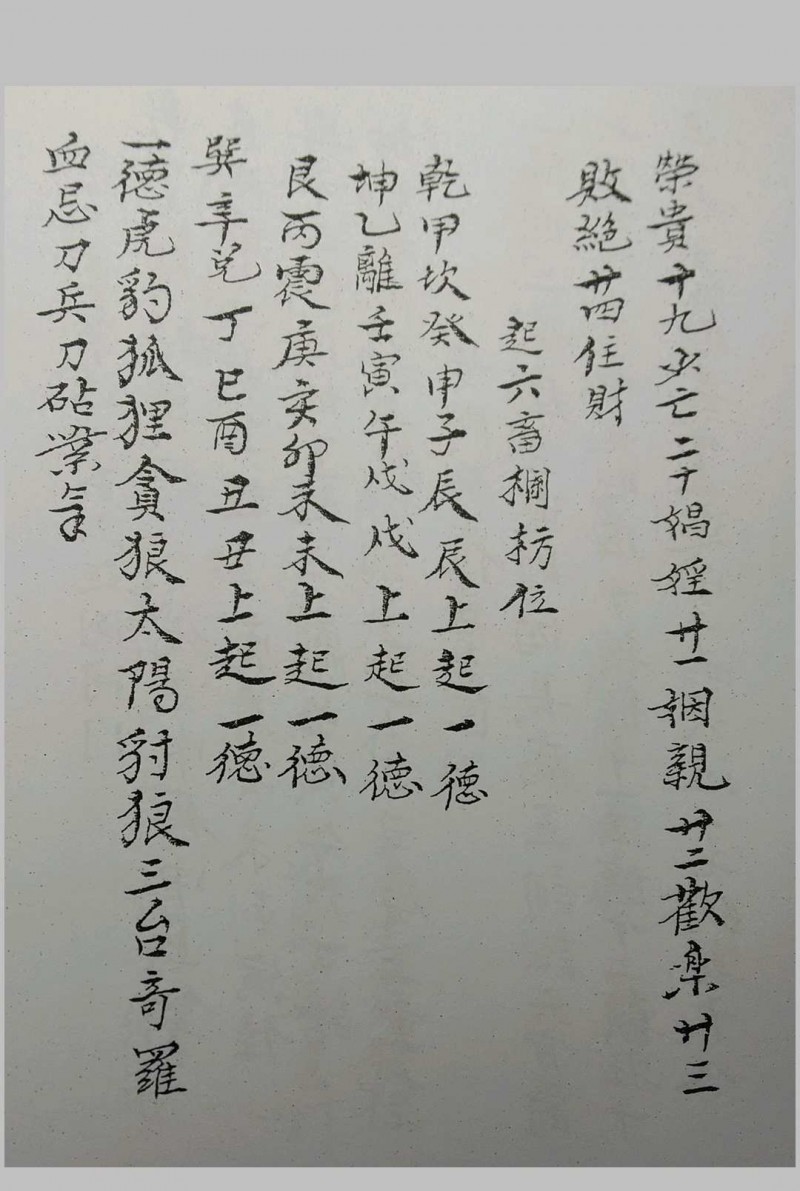 榮貴十九少亡二十娼婬廿一姻親廿二歡楽廿三
敗絕廿四住財
起六畜欄枋位
乾甲坎癸申子辰辰上起一德
坤乙離壬寅午戌戌上起一德
艮丙震庚亥卯未未上起一德
巽辛兌丁巳酉丑丑上起一德
一德虎豹狐狸貪狼太陽豺狼三台奇羅
血忌刀兵刀砧業氣